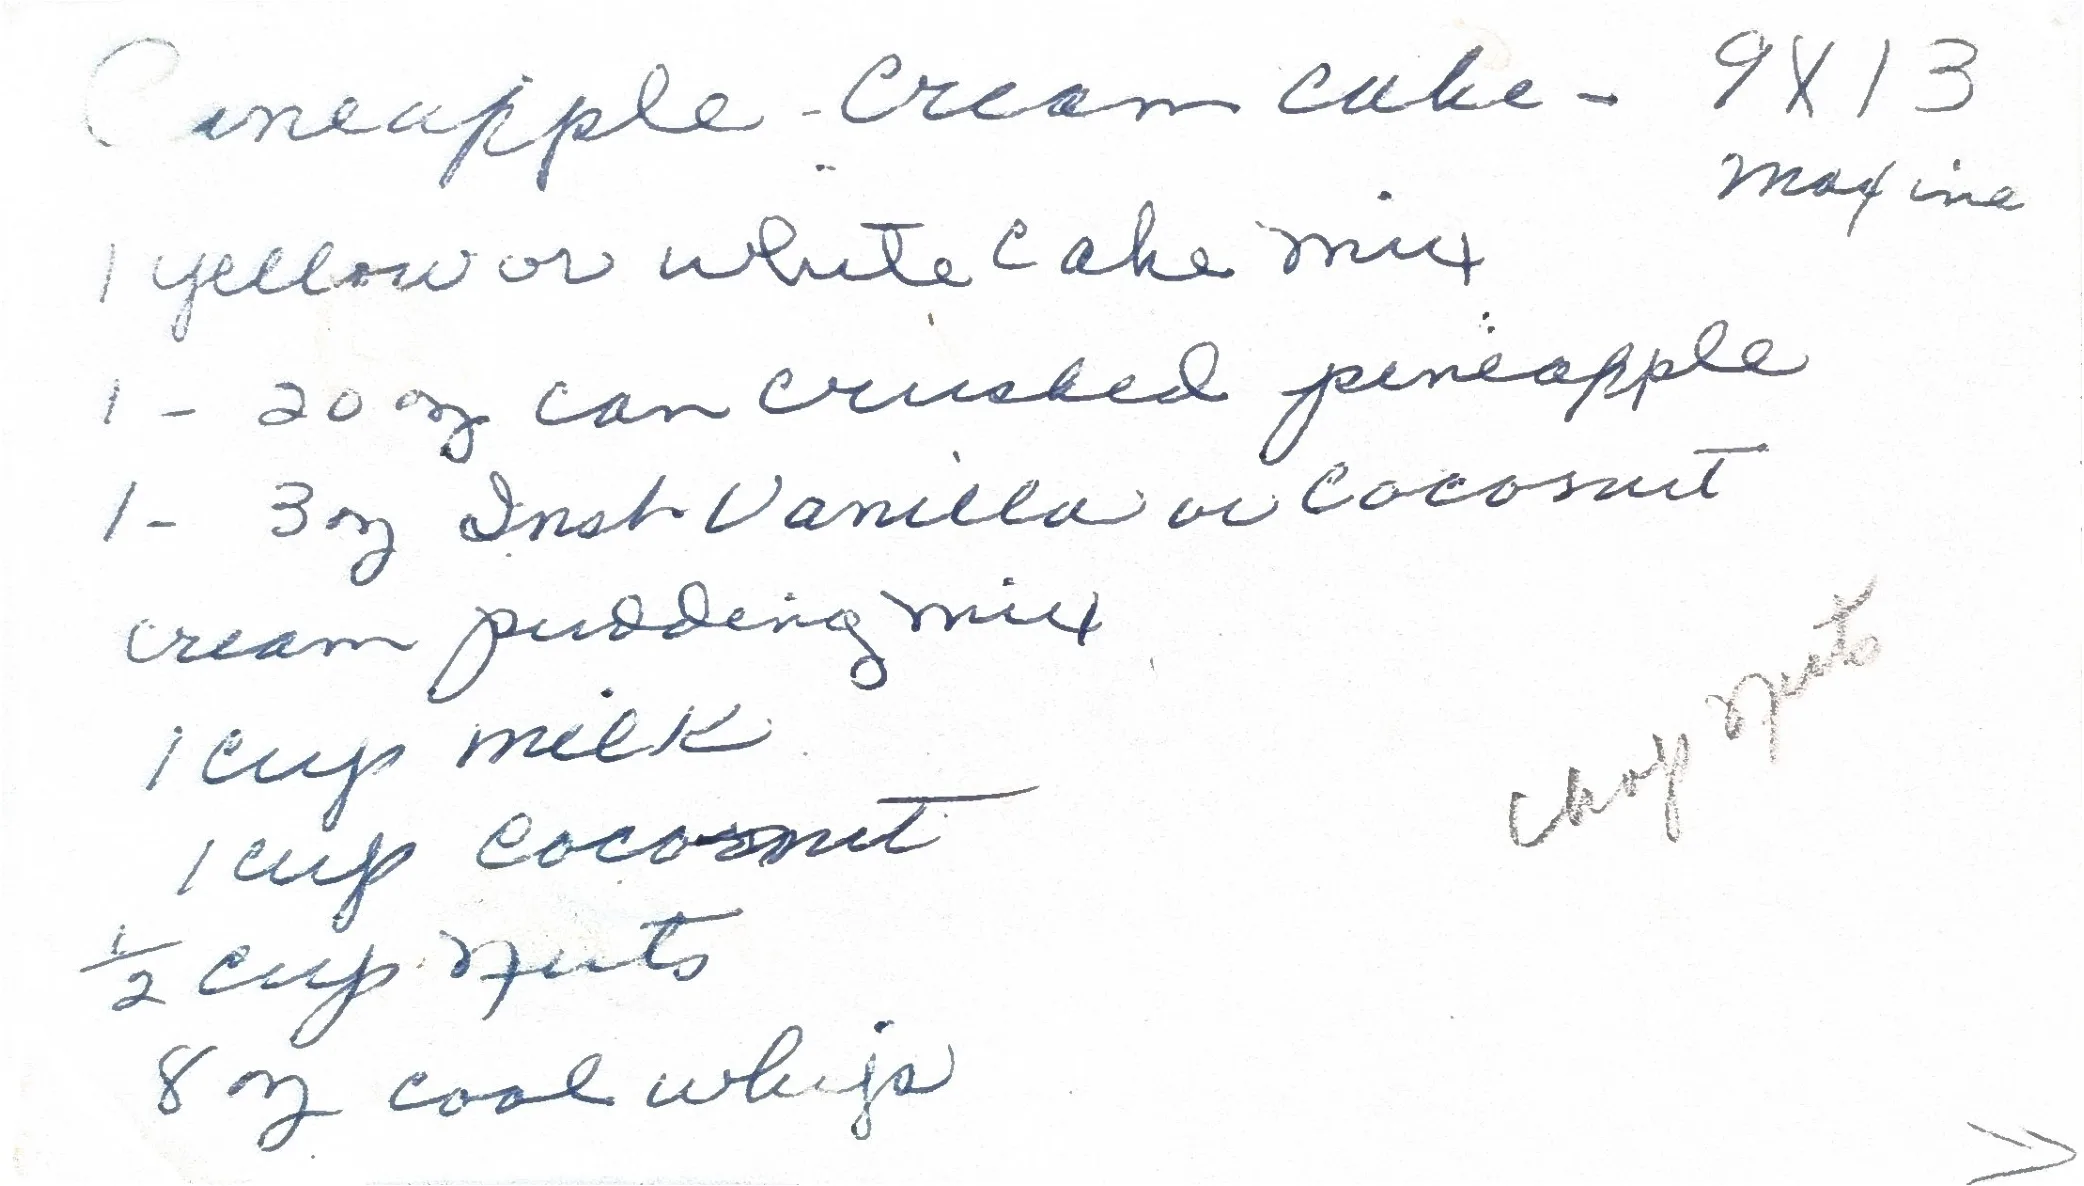 Pineapple-Cream Cake - 9X13
Maxine
1 yellow or white Cake mix
1 - 20 oz can crushed pineapple
1 - 3 oz Inst Vanilla or Coconut
cream pudding mix
1 cup milk
1 cup coconut
1/2 cup Nuts
chop Nuts
8 oz cool whip